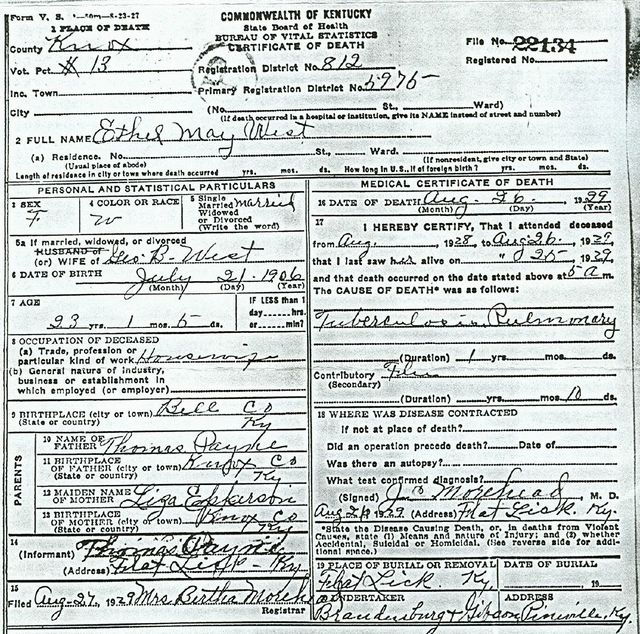 Form V. S. 1-50m-8-23-27
1 PLACE OF DEATH
COMMONWEALTH OF KENTUCKY
State Board of Health
BUREAU OF VITAL STATISTICS
CERTIFICATE OF DEATH
County Knox
File No. 22134
Registered No.
Vot. Pct. # 13
Registration District No. 812
Inc. Town
Primary Registration District No. 5975
City (No. St., Ward)
(If death occurred in a hospital or institution, give its NAME instead of street and number)
2 FULL NAME Ethel May West
(a) Residence. No. St., Ward.
(Usual place of abode) (If nonresident, give city or town and State)
Length of residence in city or town where death occurred yrs. mos. ds. How long in U.S., if of foreign birth? yrs. mos. ds.
PERSONAL AND STATISTICAL PARTICULARS
3 SEX F.
4 COLOR OR RACE W
5 Single Married Widowed or Divorced (Write the word) married
5a If married, widowed, or divorced
HUSBAND of
(or) WIFE of Geo B- West
6 DATE OF BIRTH July 21-1906
(Month) (Day) (Year)
7 AGE
23 yrs. 1 mos. 5 ds.
IF LESS than 1 day hrs. or min?
8 OCCUPATION OF DECEASED
(a) Trade, profession or particular kind of work Housewife
(b) General nature of industry, business or establishment in which employed (or employer)
9 BIRTHPLACE (city or town) Bell Co
(State or country) Ky
PARENTS
10 NAME OF FATHER Thomas Payne
11 BIRTHPLACE OF FATHER (city or town) Knox Co
(State or country) Ky
12 MAIDEN NAME OF MOTHER Liza Epperson
13 BIRTHPLACE OF MOTHER (city or town) Knox Co
(State or country) Ky
14
(Informant) Thomas Payne
(Address) Flat Lick - Ky
15
Filed Aug-27, 1929 Mrs Bertha
Registrar
MEDICAL CERTIFICATE OF DEATH
16 DATE OF DEATH Aug. 26. 1929
(Month) (Day) (Year)
17 I HEREBY CERTIFY, That I attended deceased
from Aug. 1928, to Aug 26, 1929,
that I last saw h alive on " 25- 1929
and that death occurred on the date stated above at 5 a m.
The CAUSE OF DEATH* was as follows:
Tuberculosis, Pulmonary
(Duration) 1 yrs. mos. ds.
Contributory Flu
(Secondary)
(Duration) yrs. mos. 10 ds.
18 WHERE WAS DISEASE CONTRACTED
If not at place of death?
Did an operation precede death? Date of
Was there an autopsy?
What test confirmed diagnosis?
(Signed) Morehead, M. D.
Aug 26 1929 (Address) Flat Lick. Ky.
*State the Disease Causing Death, or, in deaths from Violent Causes, state (1) Means and nature of Injury; and (2) whether Accidental, Suicidal or Homicidal. (See reverse side for additional space.)
19 PLACE OF BURIAL OR REMOVAL
Flat Lick. Ky
DATE OF BURIAL
19
20 UNDERTAKER ADDRESS
Brandenburg + Gibson Pineville, Ky.